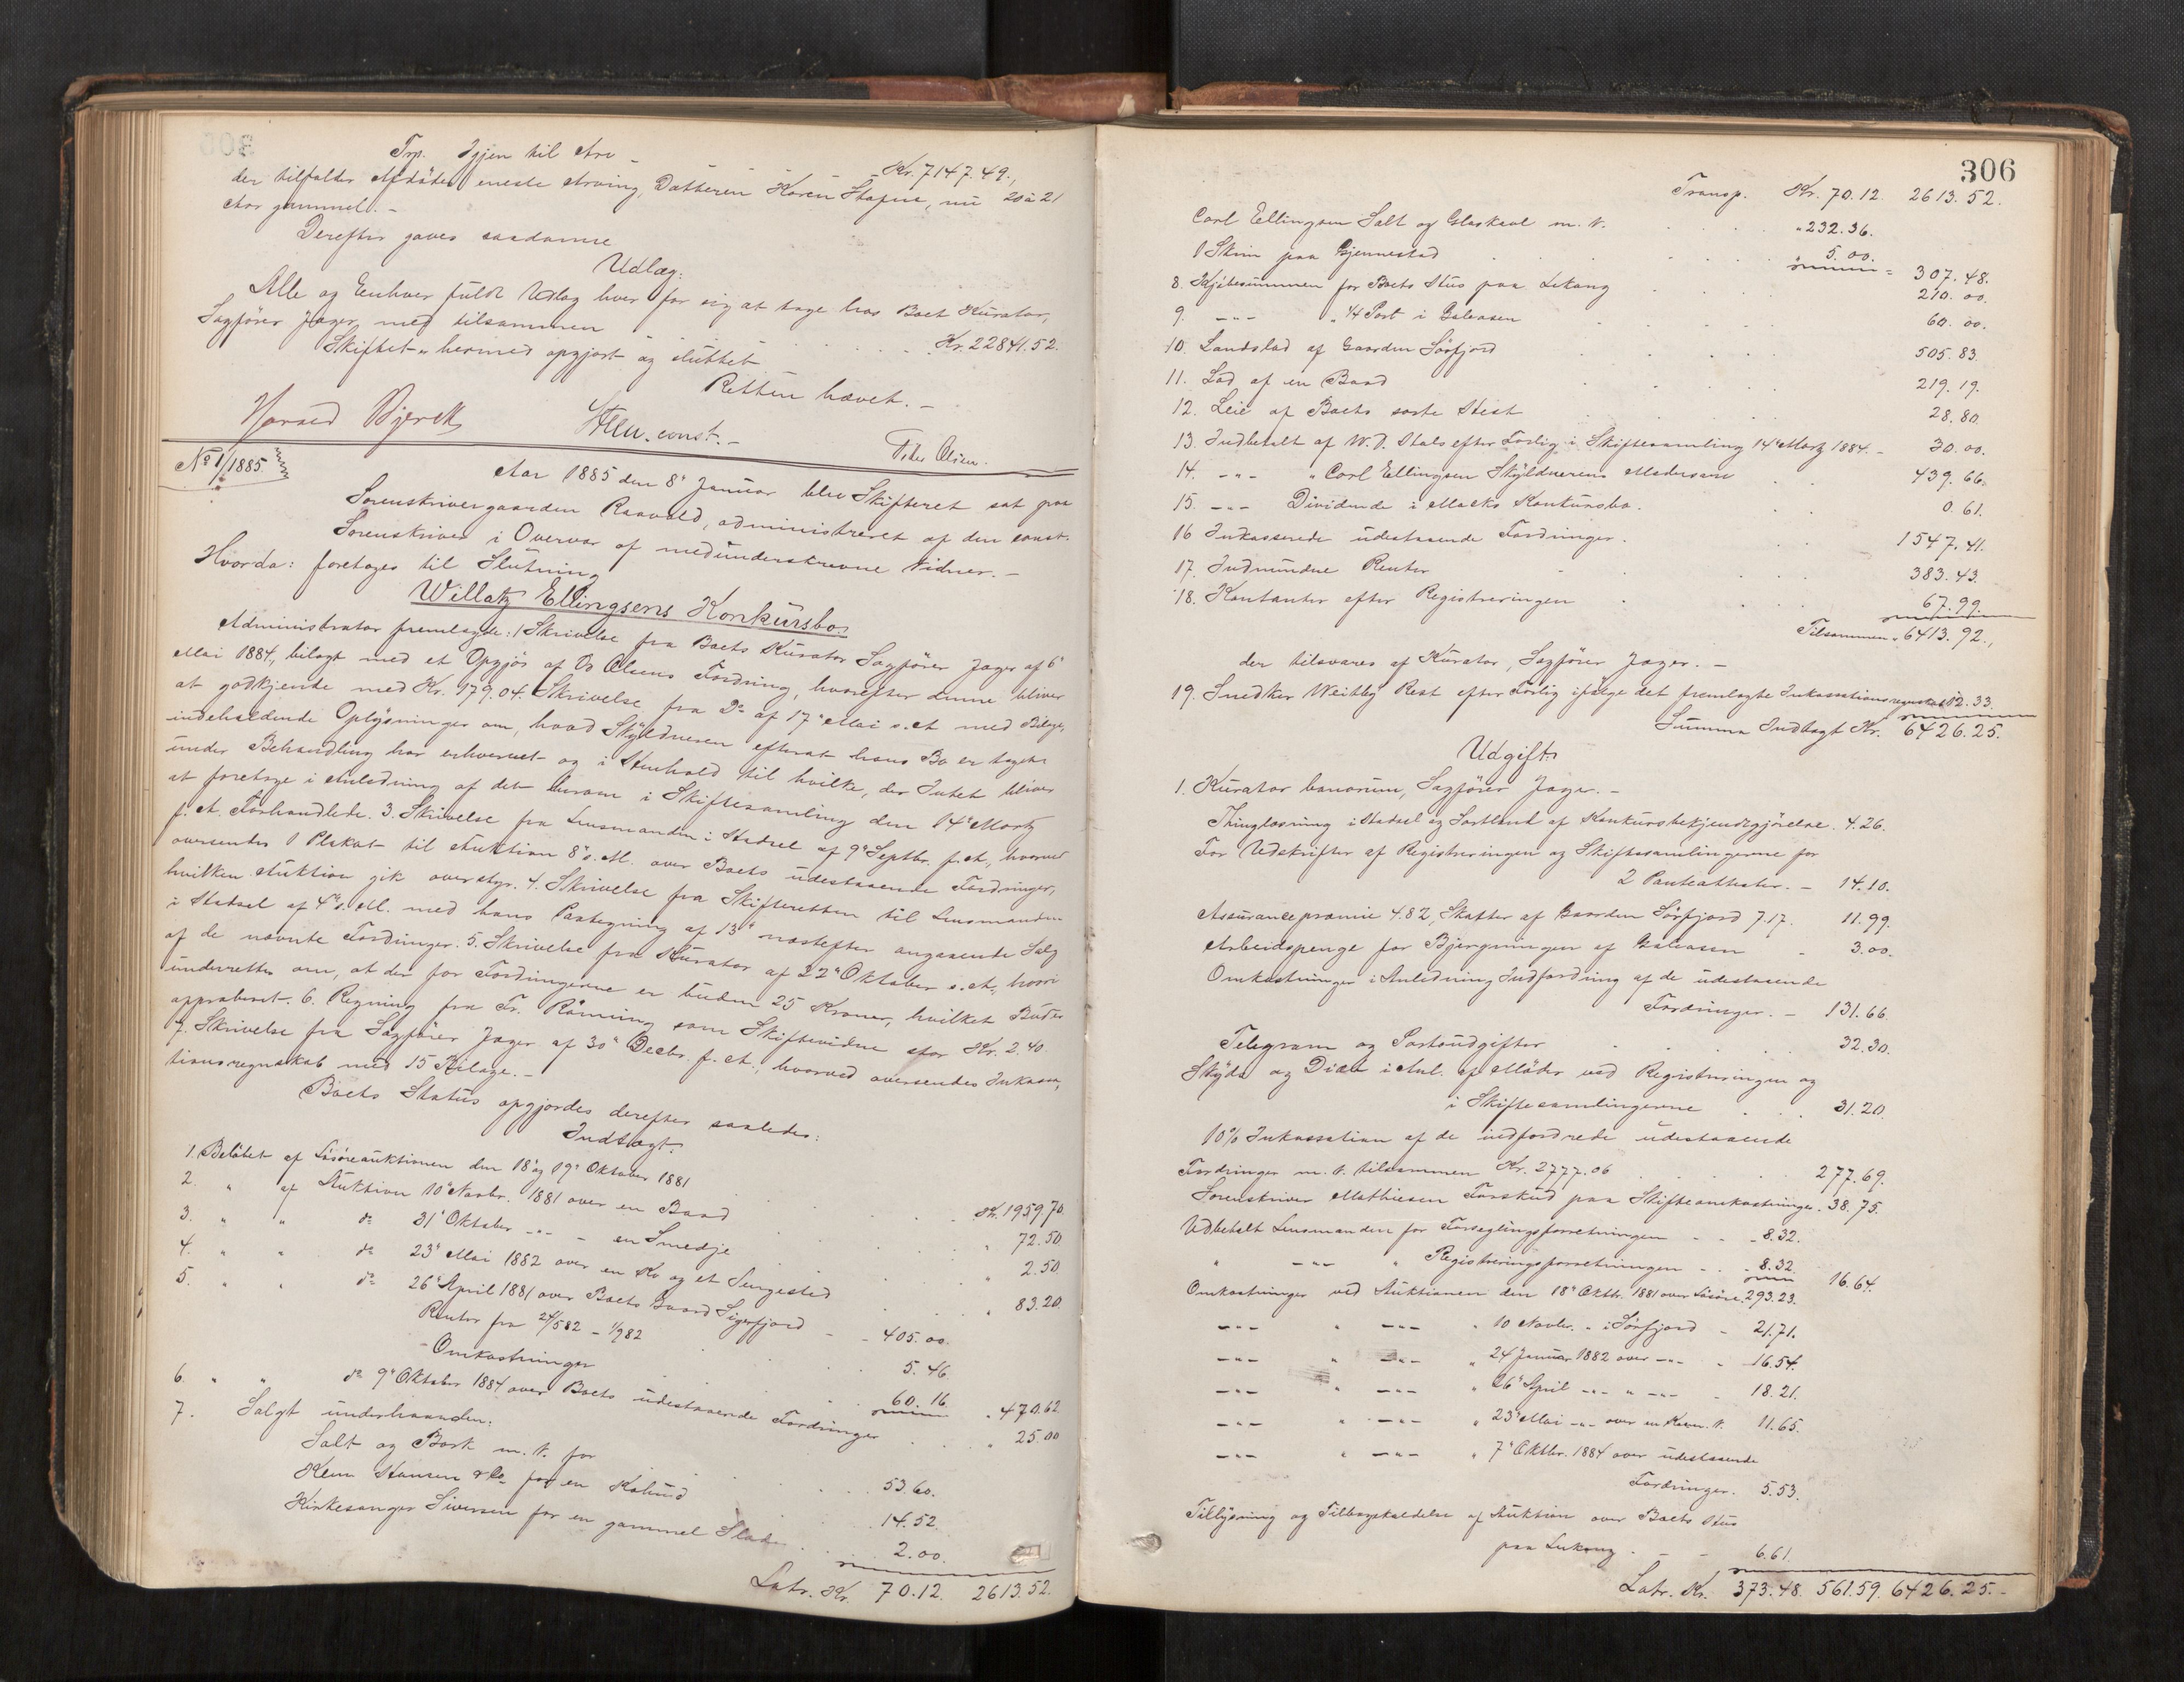 Trp. Igjen til Arv _ Kr. 7147.49.,
der tilfalder Afdødes eneste Arving, Datteren Karen Stafne, nu 20 à 21
Aar gammel. -
Derefter gaves saadanne
Udlæg:
Alle og Enhver fuldt Udlæg hver for sig at tage hos Boets Kurator,
Sagfører Jager, med tilsammen . . . . . . Kr. 22841.52.
Skiftet hermed opgjort og sluttet
Retten hævet. -
Harald Bjerck Steen const. - Peter Olsen.
No 1/1885.
Aar 1885 den 8de Januar blev Skifteret sat paa
Sorenskrivergaarden Raavold, administreret af den const.
Sorenskriver i Overvær af medunderskrevne Vidner. -
Hvorda: foretoges til Slutning
Willatz Ellingsens Konkursbo.
Administrator fremlagde: 1 Skrivelse fra Boets Kurator Sagfører Jager af 6te
Mai 1884, bilagt med et Opgjør af Os Olsens Fordring, hvorefter denne bliver
at godkjende med Kr. 179.04. Skrivelse fra Do af 17de Mai s. A. med Bilage,
indeholdende Oplysninger om, hvad Skyldneren efterat hans Bo er taget
under Behandling har erhvervet og i Henhold til hvilke, der Intet bliver
at foretage i Anledning af det herom i Skiftesamling den 14de Marts
f. A. Forhandlede. 3. Skrivelse fra Lensmanden i Hadsel af 9de Septbr. f. A., hvorved
oversendes 1 Plakat til Auktion 8de s. M. over Boets udestaaende Fordringer,
hvilken Auktion gik overstyr. 4. Skrivelse fra Skifteretten til Lensmanden
i Hadsel af 4de s. M. med hans Paategning af 13de næstefter angaaende Salg
af de nævnte Fordringer. 5. Skrivelse fra Kurator af 22de Oktober s. A., hvori
underrettes om, at der for Fordringerne er buden 25 Kroner, hvilket Bud er
approberet. 6. Regning fra Fr. Rånning som Skiftevidne stor Kr. 2.40.
7. Skrivelse fra Sagfører Jager af 30de Decbr. f. A., hvorved oversendes Inkassa-
tionsregnskab med 15 Bilage. -
Boets Status opgjordes derefter saaledes:
Indtægt:
1. Beløbet af Løsøreauktionen den 18de og 19de Oktober 1881 . . . Kr. 1959.70.
2. " af Auktion 10de Novbr. 1881 over en Baad . . . " 72.50
3. " " do 31te Oktober -"- - en Smedje . . . " 2.50
4. " " do 23de Mai 1882 over en Ko og et Sengested . . . " 83.20.
5. " " do 26de April 1881 over Boets Gaard Sigerfjord - - 405.00.
Renter fra 24/5 82 - 1/9 82 . . . 5.46.
- Omkostninger . . . 60.16. " 470.62
6. " " do 9de Oktober 1884 over Boets udestaaende Fordringer . . . " 25.00
7. Salgt underhaanden:
Salt og Bark m. v. for . . . 53.60.
Hem. Hansen & Co for en Kahund . . . 14.52.
Kirkesanger Siversen for en gammel Slæde . . . 2.00.
Latr. Kr. 70.12. 2613.52.
306
Transp. Kr. 70.12. 2613.52.
Carl Ellingsen Salt og Glaskavl m. v. . . . " 232.36.
1 Skin paa Gjennestad . . . 5.00. " 307.48.
8. Kjøbesummen for Boets Hus paa Lekang . . . 210.00.
9. -"- " 1/4 Part i Galeasen . . . 60.00.
10. Landslod af Gaarden Sørfjord . . . 505.83.
11. Lod af en Baad . . . 219.19.
12. Leie af Boets sorte Hest . . . 28.80.
13. Indbetalt af W. D. Hals efter Forlig i Skiftesamling 14de Marts 1884. - 30.00.
14. -"- " Carl Ellingsen Skyldnerens Mellemværende . . 439.66.
15. -"- Dividende i Macks Konkursbo. . . 0.61.
16 Inkasserede udestaaende Fordringer. . . 1547.41.
17. Indvundne Renter . . . 383.43.
18. Kontanter efter Registreringen . . . 67.99.
Tilsammen " 6413.92.,
der tilsvares af Kurator, Sagfører Jager. -
19. Snedker Weitby Rest efter Forlig ifølge det fremlagte Inkassationsregnskab 12.33.
Summa Indtægt Kr. 6426.25.
Udgift:
1. Kurator bonorum, Sagfører Jager. -
Thinglæsning i Hadsel og Sortland af Konkursbekjendtgjørelse. 4.26.
For Udskrifter af Registreringen og Skiftesamlingerne for
2 Panteattester. - 14.10.
Assurancepræmie 4.82, Skatter af Gaarden Sørfjord 7.17. 11.99.
Arbeidspenge for Bjergningen af Galeasen - 3.00.
Omkostninger i Anledning Indfordring af de udestaaende
Fordringer. - 131.66.
Telegram og Portoudgifter . . . 32.30.
Skyds og Diæt i Anl. af Møder ved Registreringen og
i Skiftesamlingerne . . . 31.20.
10% Inkassation af de indfordrede udestaaende
Fordringer m. v. tilsammen Kr. 2777.06 . . . 277.69.
Sorenskriver Mathiesen Forskud paa Skifteomkostninger. 38.75.
Udbetalt Lensmanden for Forseglingsforretningen - - - 8.32.
" -"- " Registreringsforretningen - - - 8.32. 16.64.
Omkostninger ved Auktionen den 18de Oktbr. 1881 over Løsøre. 293.23.
-"- " -"- " 10 Novbr. - i Sørfjord - 21.71.
-"- " -"- " 24 Januar 1882 over -"- - 16.54.
-"- " -"- " 26de April -"- " -"- - 18.21.
-"- " -"- " 23de Mai -"- over en Ko m. v. 11.65.
-"- " -"- " 7de Oktbr. 1884 over udestaaende
Fordringer. 5.53.
Tillysning og Tilbagekaldelse af Auktion over Boets Hus
paa Lekang . - - 6.61.
Latr. Kr. 373.48. 561.59. 6426.25. -